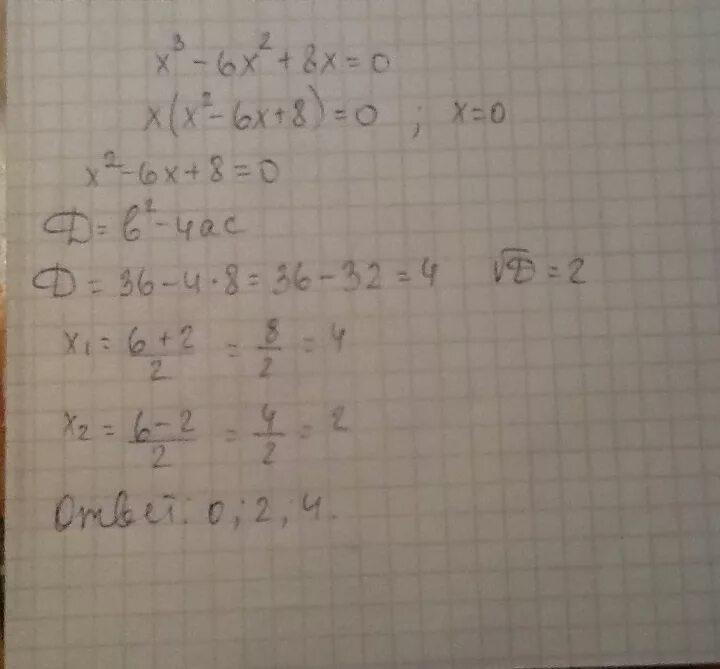 x³ - 6x² + 8x = 0
x(x² - 6x + 8) = 0 ; x = 0
x² - 6x + 8 = 0
D = b² - 4ac
D = 36 - 4 · 8 = 36 - 32 = 4 √D = 2
x₁ = (6 + 2)/2 = 8/2 = 4
x₂ = (6 - 2)/2 = 4/2 = 2
Ответ: 0; 2; 4.